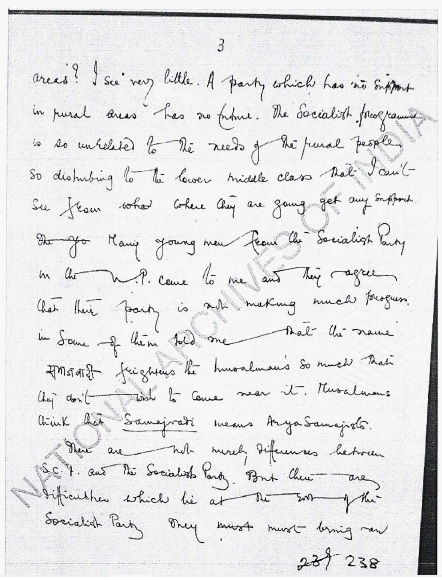 3
areas? I see very little. A party which has no support
in rural areas has no future. The Socialist programme
is so unrelated to the needs of the rural people
so disturbing to the lower middle class that I can't
see from what where they are going get any support
The yo Many young men from the Socialist Party
in the U.P. came to me and they agree
that their party is not making much progress.
in Some of them told me that the name
समाजवादी frightens the Musalman's so much that
they don't wish to come near it. Musalmans
think that Samajvadi means Arya Samajists.
There are not merely differences between
S.C.F. and the Socialists Party. But there are
difficulties which lie at the root of the
Socialist Party They must must bring an
239 238
NATIONAL ARCHIVES OF INDIA